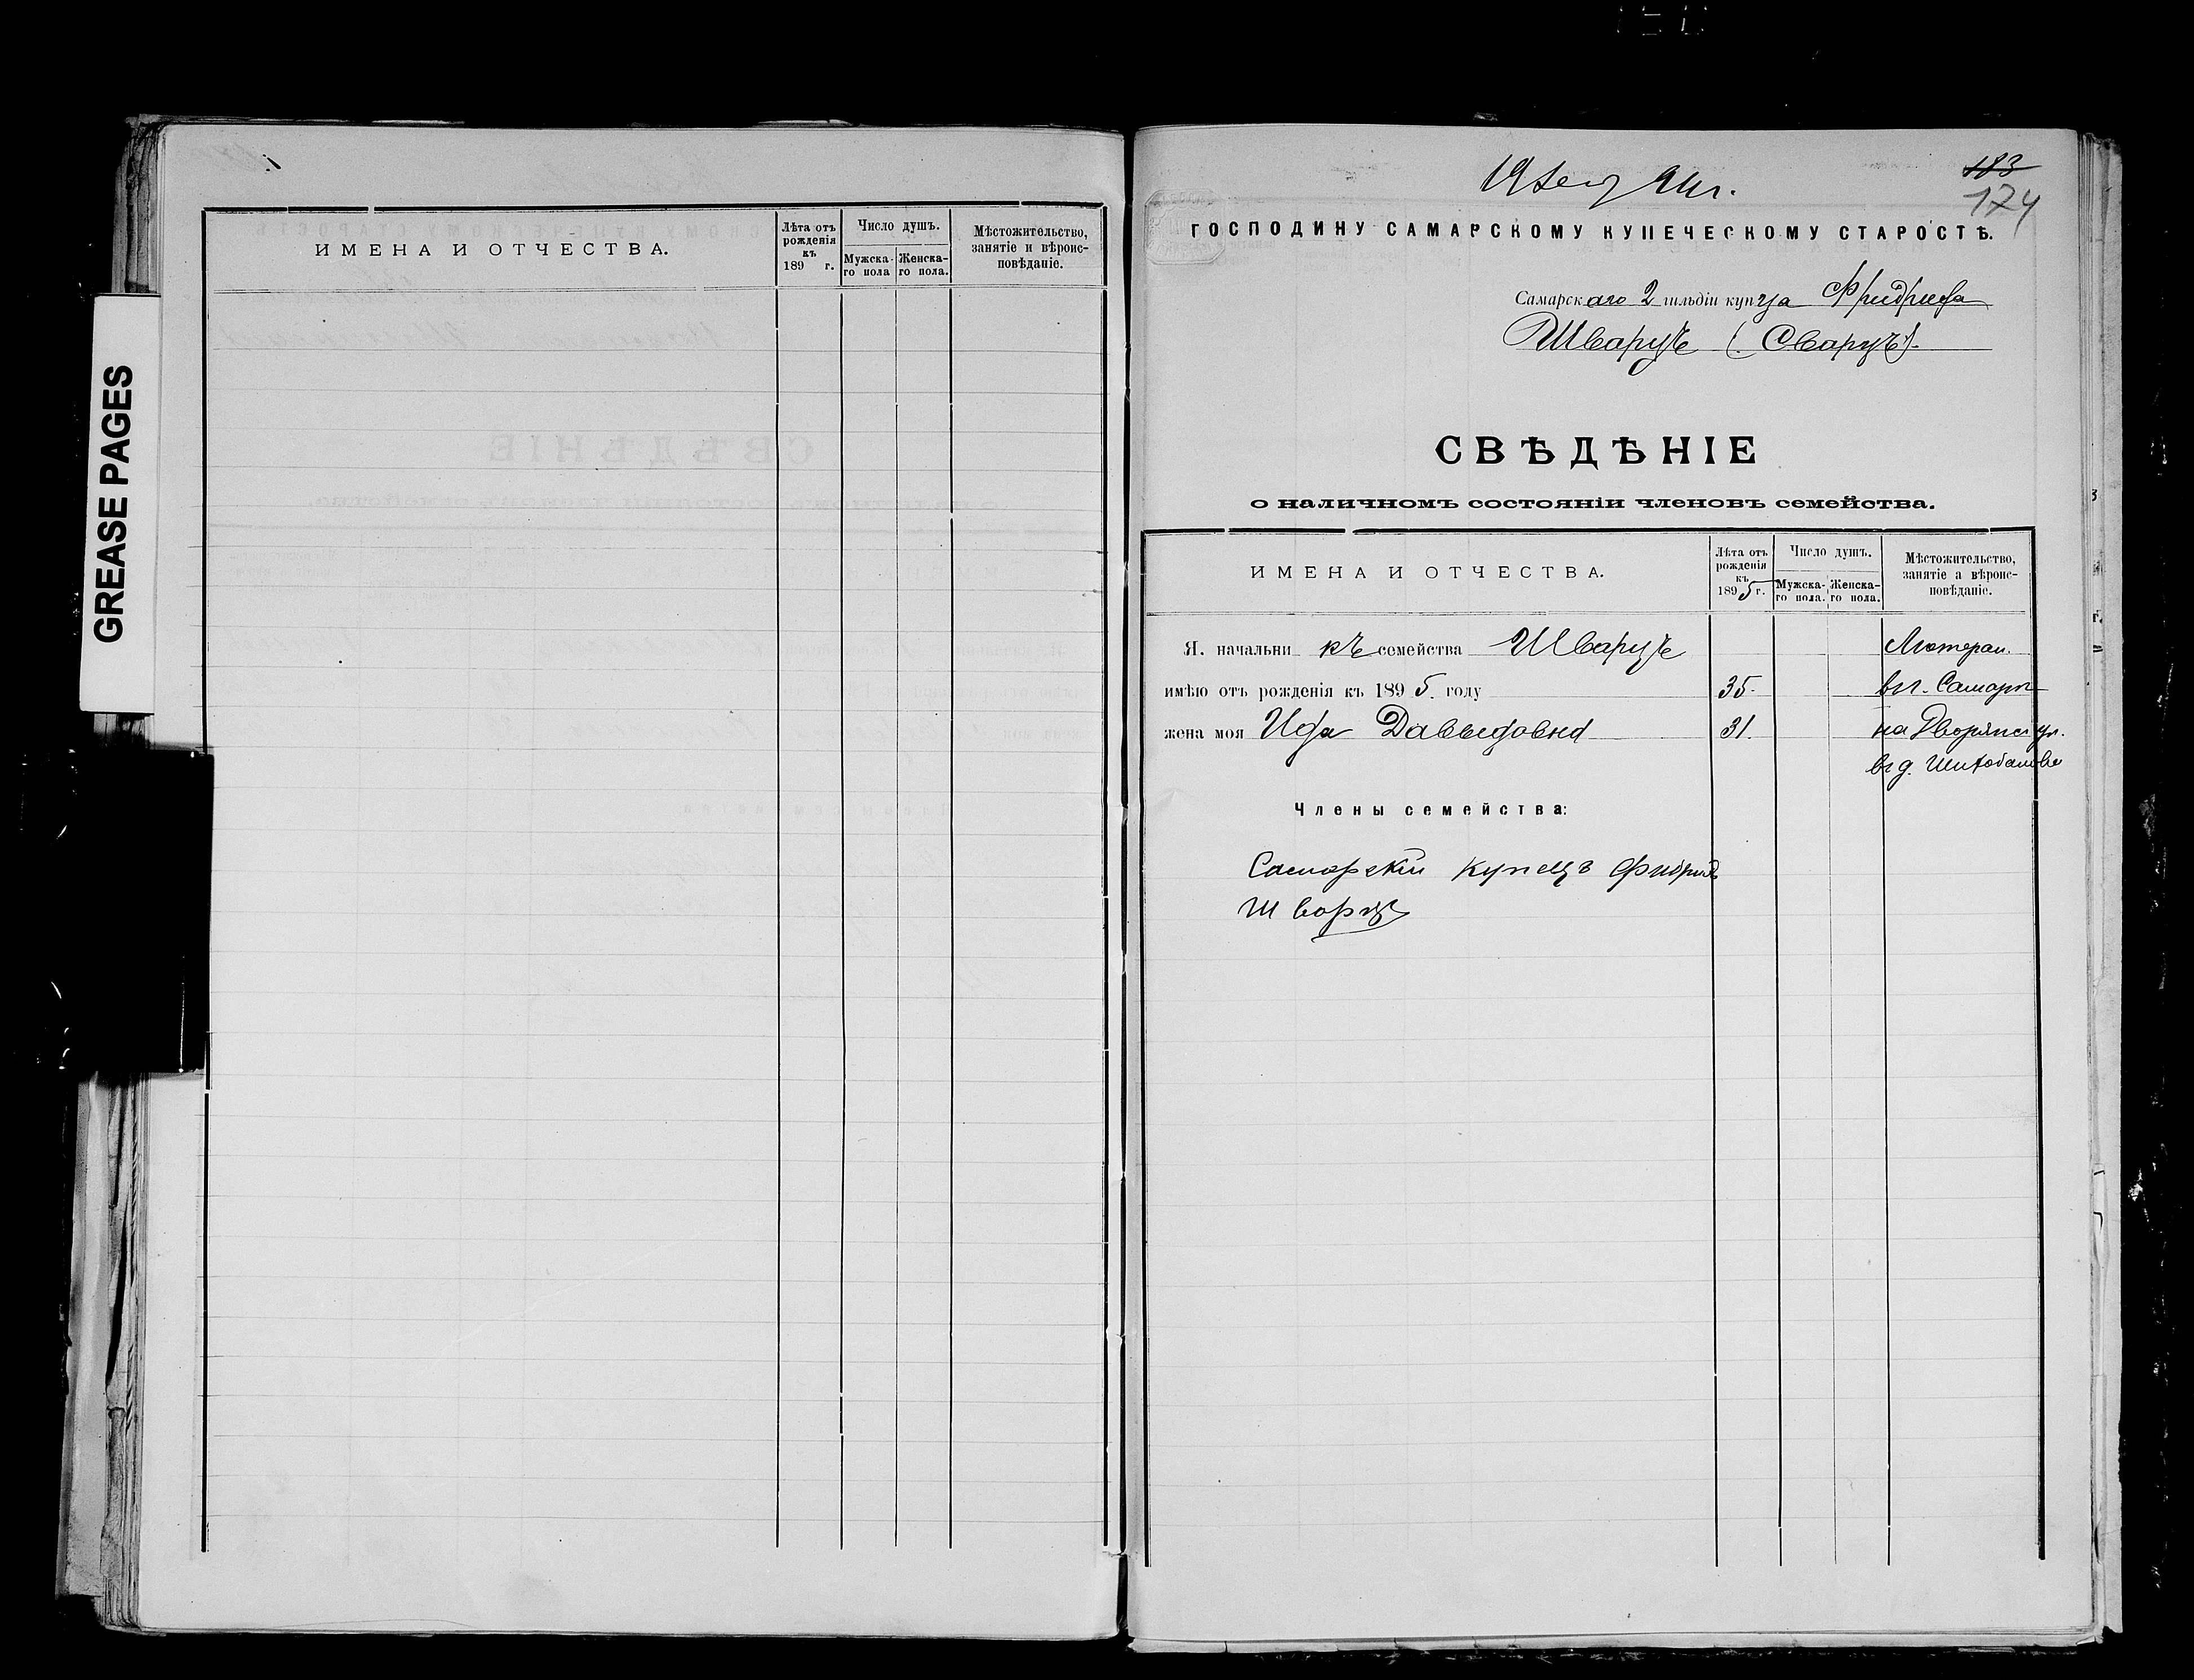 GREASE PAGES
ИМЕНА И ОТЧЕСТВА.
Лѣта отъ рожденія къ 189 г.
Число душъ.
Мужска-го пола
Женска-го пола.
Мѣстожительство, занятіе и вѣроис-повѣданіе.
94 г.
183
174
ГОСПОДИНУ САМАРСКОМУ КУПЕЧЕСКОМУ СТАРОСТѢ.
Самарскаго 2 гильдіи купца Фридриха
Шварцъ (Сварцъ).
СВѢДѢНІЕ
о наличномъ состояніи членовъ семейства.
ИМЕНА И ОТЧЕСТВА.
Лѣта отъ рожденія къ 1895 г.
Число душъ.
Мужска-го пола.
Женска-го пола.
Мѣстожительство, занятіе а вѣроис-повѣданіе.
Я. начальникъ семейства Шварцъ Лютеран.
имѣю отъ рожденія къ 1895. году 35. въ г. Самарѣ
жена моя Ида Давыдовна 31. на Дворянс ул.
въ д. Шихобалова
Члены семейства:
Самарскій купецъ Фридрих
Шварцъ